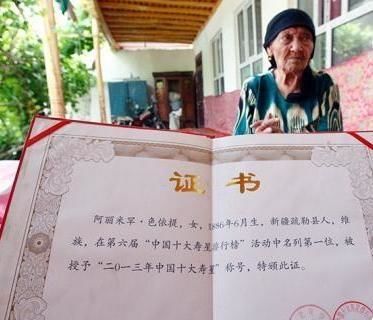 证书
阿丽米罕·色依提，女，1886年6月生，新疆疏勒县人，维
族，在第六届“中国十大寿星排行榜”活动中名列第一位，被
授予“二0一三年中国十大寿星”称号，特颁此证。